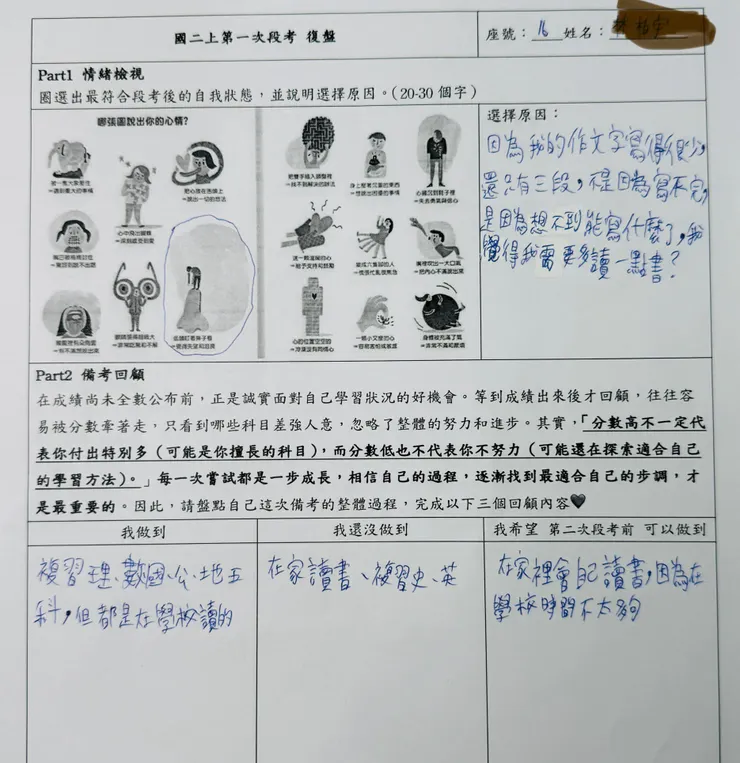 國二上第一次段考 復盤
座號：16 姓名：
Part1 情緒檢視
圈選出最符合段考後的自我狀態，並說明選擇原因。(20-30 個字)
哪張圖說出你的心情？
選擇原因：
因為我的作文字寫得很少，
還只有三段，不是因為寫不完，
是因為想不到能寫什麼了，我
覺得我需要多讀一點書？
Part2 備考回顧
在成績尚未全數公布前，正是誠實面對自己學習狀況的好機會。等到成績出來後才回顧，往往容
易被分數牽著走，只看到哪些科目差強人意，忽略了整體的努力和進步。其實，「分數高不一定代
表你付出特別多（可能是你擅長的科目），而分數低也不代表你不努力（可能還在探索適合自己
的學習方法）。」每一次嘗試都是一步成長，相信自己的過程，逐漸找到最適合自己的步調，才
是最重要的。因此，請盤點自己這次備考的整體過程，完成以下三個回顧內容🖤
我做到
我還沒做到
我希望 第二次段考前 可以做到
複習理、數、國、公、地五
科，但都是在學校讀的
在家讀書、複習史、英
在家裡會自己讀書，因為在
學校時間不太夠